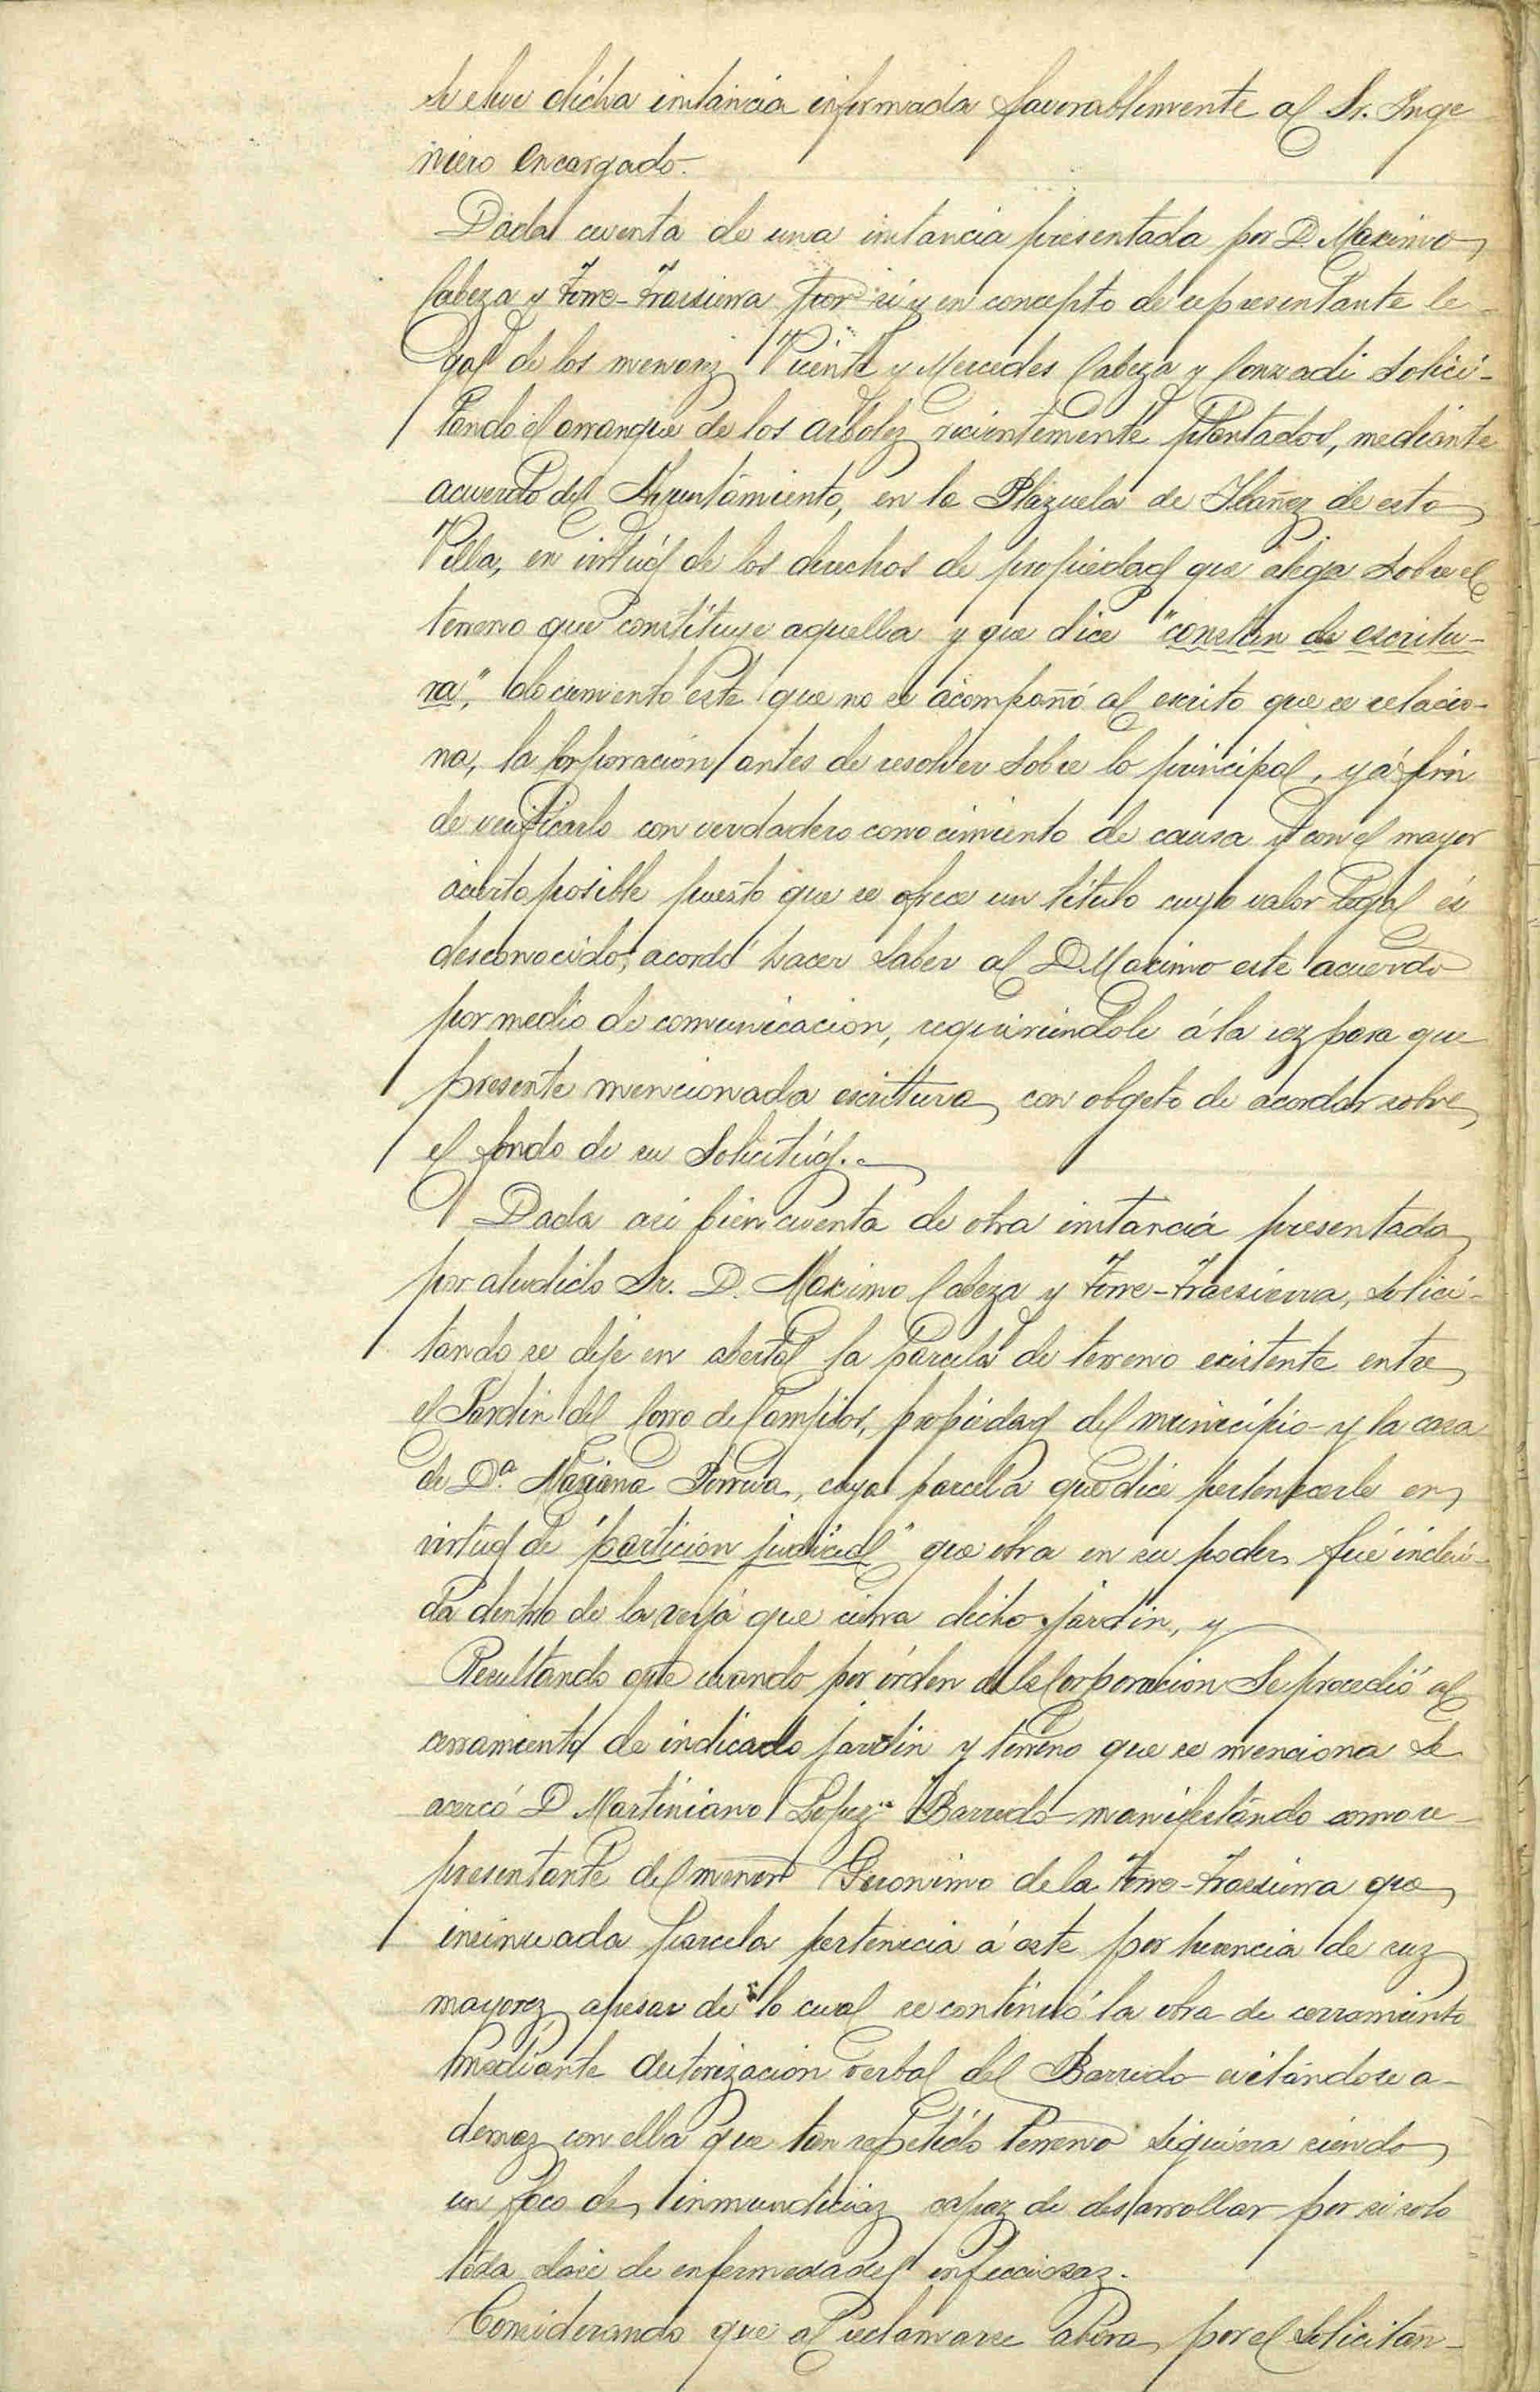 se eleve dicha instancia informada favorablemente al Sr. Inge
niero encargado.
Dada cuenta de una instancia presentada por D. Maximo
Cabeza y Torre-Trassierra por si y en concepto de representante le-
gal de los menorez Vicente y Mercedes Cabeza y Conradi solici-
tando el arranque de los arbolez recientemente plantados, mediante
acuerdo del Ayuntamiento, en la Plazuela de Ibañez de esta
Villa, en virtúd de los derechos de propiedad que alega sobre el
terreno que constituye aquella y que dice "constan de escritu-
ra", documento este que no se acompañó al escrito que se relacio-
na, la Corporacion antes de resolver sobre lo principal, y á fin
de verificarlo con verdadero conocimiento de causa y con el mayor
acierto posible puesto que se ofrece un título cuyo valor legal és
desconocido, acordó hacer saber al D. Maximo este acuerdo
por medio de comunicacion, requiriendole á la vez para que
presente mencionada escritura, con objeto de acordar sobre
el fondo de su solicitúd.
Dada asi bien cuenta de otra instancia presentada
por aludido Sr. D. Maximo Cabeza y Torre-Trassierra, solici-
tando se deje en abertal la parcela de terreno existente entre
el Jardin del Corro de Campitos, propiedad del municipio y la casa
de Dª. Mariana Porrua, cuya parcela que dice pertenecerle en
virtud de "particion judicial" que obra en su poder, fué inclui-
da dentro de la verja que cierra dicho jardin, y
Resultando que cuando por órden de la Corporacion se procedió al
cerramiento de indicado jardin y terreno que se menciona se
acercó D Martiniano Lopez Barredo manifestándo como re-
presentante del menor Geronimo de la Torre-Trassierra que
insinuada parcela pertenecia á este por herencia de suz
mayorez, apesar de lo cual se continuó la obra de cerramiento
mediante autorizacion verbal del Barredo evitándose a-
demaz con ella que tan repetido terreno siguiera siendo
un foco de inmundiciaz capaz de desarrollar por si solo
toda clase de enfermedades infecciosaz.
Considerando que al reclamarse ahora por el solicitan-